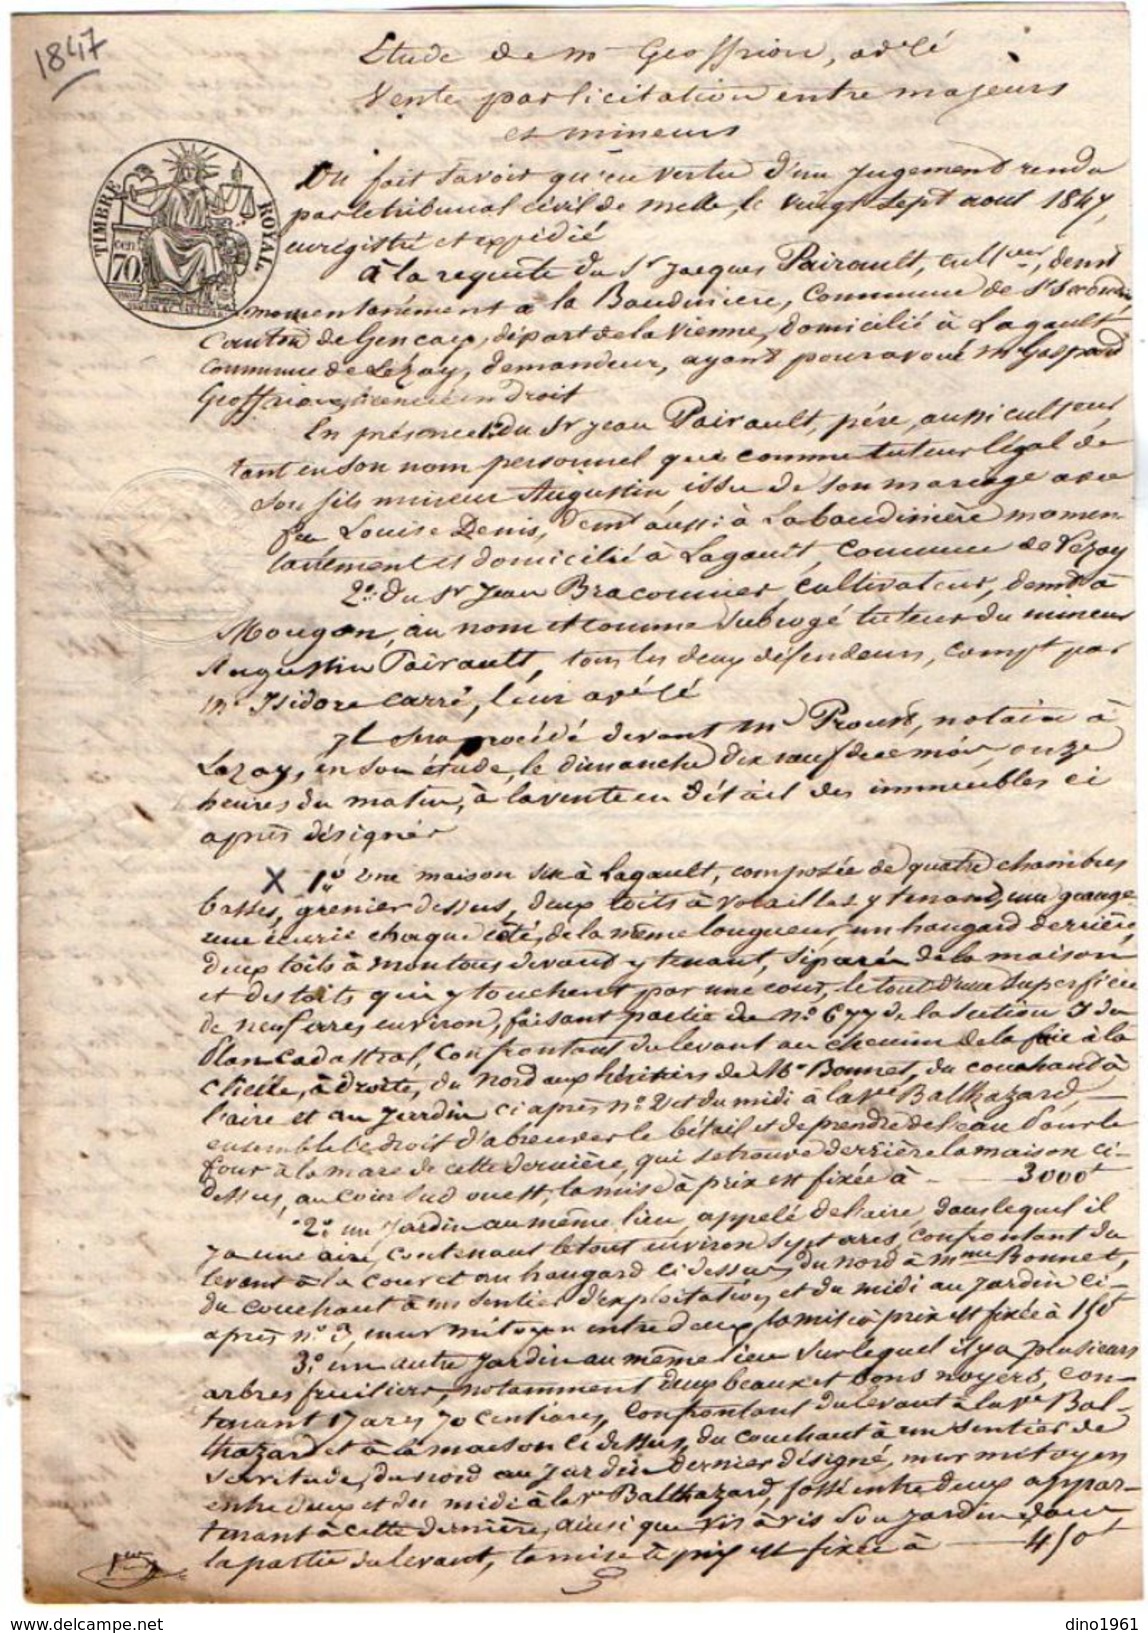 1847
Etude de me Geoffrion, avoé
Vente par licitation entre majeurs
et mineurs
TIMBRE ROYAL
70 cen
On fait savoir qu'en vertu d'un jugement rendu
par le tribunal civil de Melle, le vingt sept aout 1847,
enregistré et expédié
à la requête du Sr Jacques Pairault, culteur, demt
momentanément à la Baudiniere, commune de St
Canton de Gencay, départ de la Vienne, domicilié à Lagault
commune de Lezay, demandeur, ayant pour avoué Me Gaspard
Geoffrion, licencié en droit
En présence 1o du Sr Jean Pairault, père, aussi culteur,
tant en son nom personnel que comme tuteur légal de
son fils mineur Augustin, issu de son mariage avec
feu Louise Denis, demt aussi à Labaudinière momen
tanément et domicilié à Lagault, commune de Lezay
2o du Sr Jean Braconnier, cultivateur, demt à
Mougon, au nom et comme subrogé tuteur du mineur
Augustin Pairault, tous les deux défendeurs, compt par
Me Isidore Carré, leur avoé
Il sera procédé devant Me Proust, notaire à
Lezay, en son étude, le dimanche dix neuf decembre, onze
heures du matin, à la vente en détail des immeubles ci
après désignés
X 1o une maison sise à Lagault, composée de quatre chambres
basses, grenier dessus, deux toits à volailles y tenant, une grange
une écurie chaque côté, de la même longueur, un hangard derrière,
deux toits à moutons devant y tenant, séparés de la maison
et des toits qui y touchent par une cour, le tout d'une superficie
de neuf ares environ, faisant partie du no 677 de la section I du
Plan cadastral, confrontant du levant au chemin de la faie à la
, à droite, du nord aux héritiers de Me Bonnet, du couchant à
l'aire et au jardin ci après no 2 et du midi à la ve Balthazard,
ensemble le droit d'abreuver le bétail et de prendre de l'eau pour le
four à la mare de cette dernière, qui se trouve derrière la maison ci-
dessus, au coin sud ouest; la mise à prix est fixée à 3000f
2o un jardin au même lieu, appelé de l'aire, dans lequel il
y a une aire, contenant le tout environ sept ares, confrontant du
levant à la cour et au hangard ci dessus, du nord à Mme Bonnet,
du couchant à un sentier d'exploitation et du midi au jardin ci-
après no 3, mur mitoyen entre deux, la mise à prix est fixée à 150f
3o un autre jardin au même lieu sur lequel il y a plusieurs
arbres fruitiers, notamment deux beaux et bons noyers, con-
tenant 17 ares 70 centiares, confrontant du levant à la ve Bal-
thazard et à la maison ci dessus, du couchant à un sentier de
servitude, du nord au jardin dernier désigné, mur mitoyen
entre deux et du midi à la ve Balthazard, fossé entre deux appar-
tenant à cette dernière, ainsi que vis à vis son jardin dans
la partie du levant, la mise à prix est fixée à 450f
dino1961